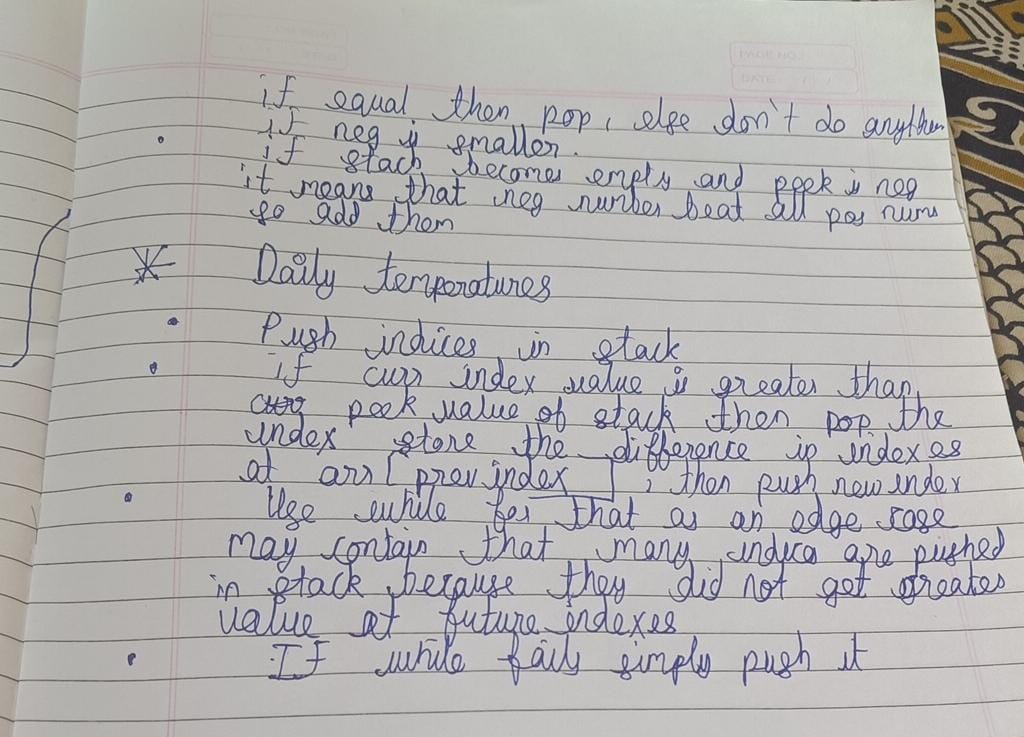 PAGE NO.
DATE
if equal then pop, else don't do anythin
• if neg is smaller.
if stack becomes empty and peek is neg
it means that neg number beat all pos nums
so add them
Daily temperatures
• Push indices in stack
• if curr index value is greater than
peek value of stack then pop the
index store the difference in indexes
at arr[prev index], then push new index
• Use while for that as an edge case
may contain that many indices are pushed
in stack because they did not get greater
value at future indexes
• If while fails simply push it